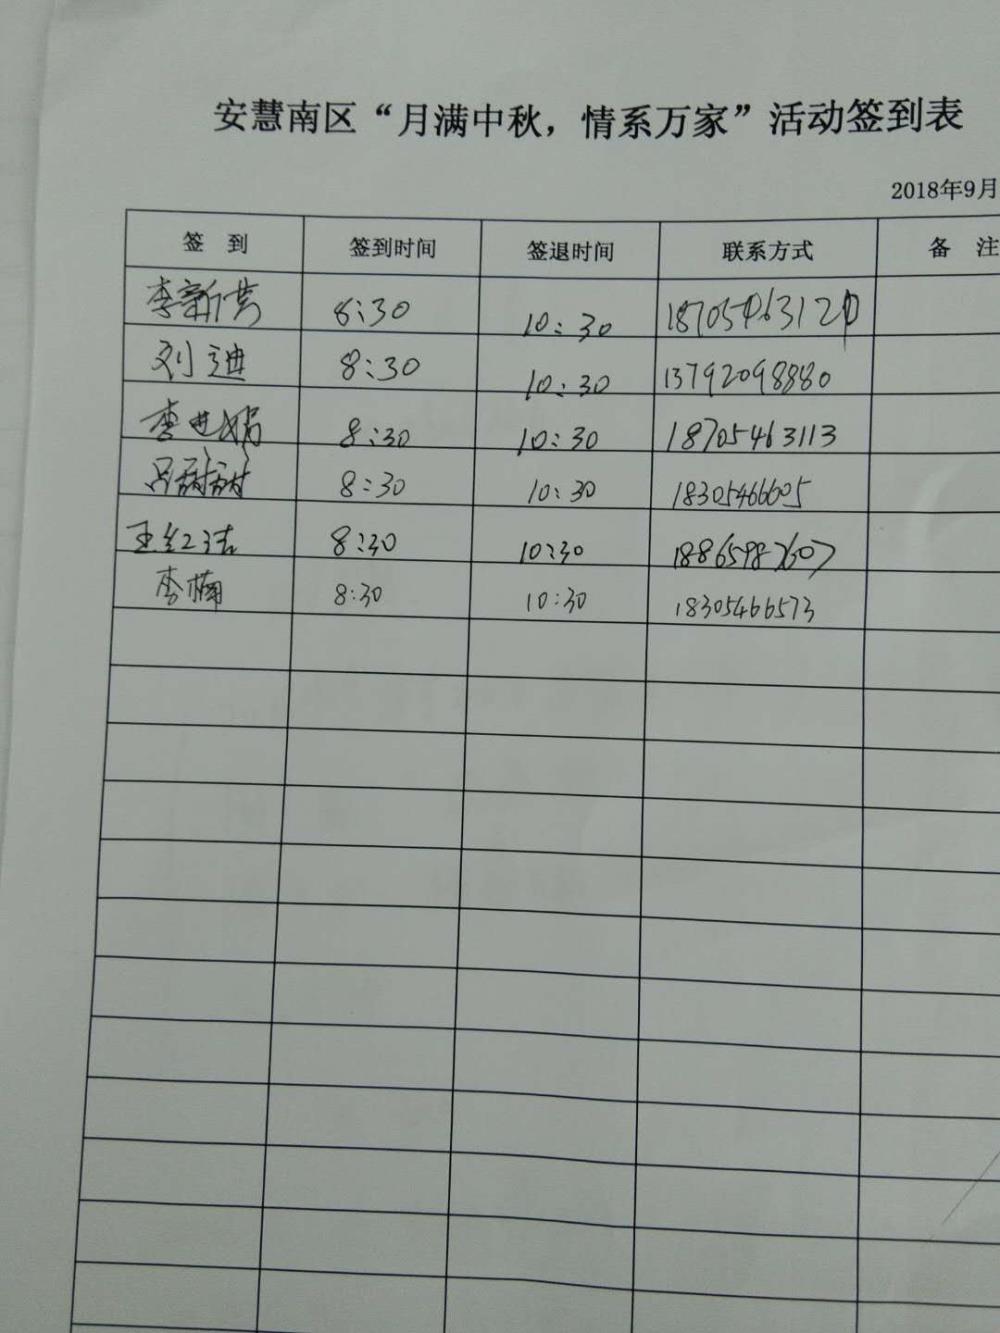 安慧南区“月满中秋，情系万家”活动签到表
2018年9月
签 到 签到时间 签退时间 联系方式 备 注
李新 8:30 10:30
刘迪 8:30 10:30 13792098880
李 娟 8:30 10:30 18705463113
吕甜甜 8:30 10:30 18305466605
王红洁 8:30 10:30 18865987607
李楠 8:30 10:30 18305466573